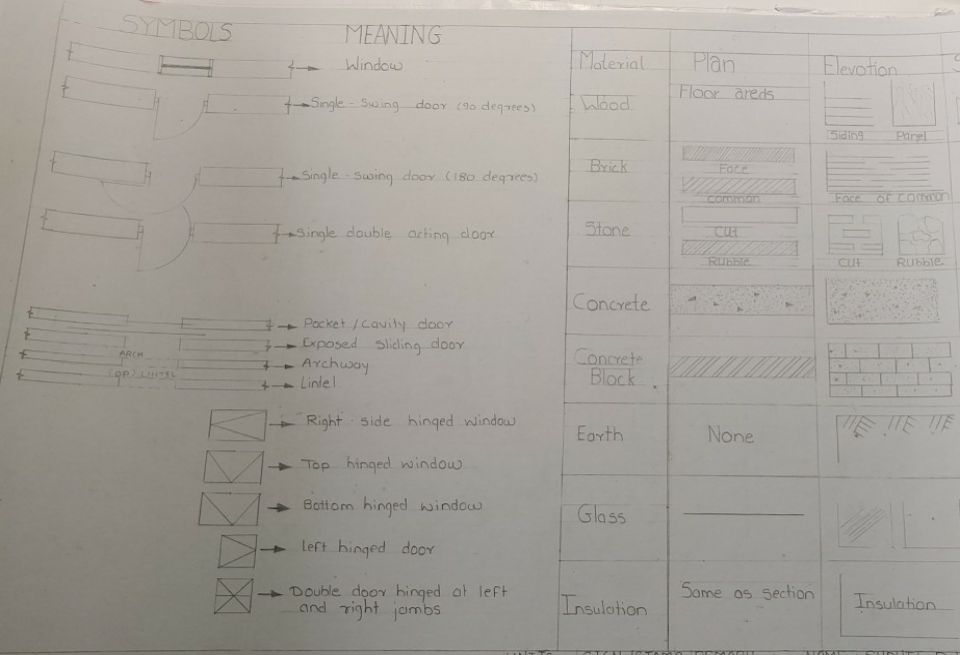 SYMBOLS
MEANING
Window
Single-Swing door (90 degrees)
Single-Swing door (180 degrees)
Single double acting door
Pocket / Cavity door
Exposed sliding door
ARCH
Archway
Lintel
Right side hinged window
Top hinged window
Bottom hinged window
left hinged door
Double door hinged at left
and right jambs
Material
Plan
Elevation
Wood
Floor areds
Siding
Panel
Brick
Face
Common
Face of common
Stone
Cut
Rubble
Cut
Rubble
Concrete
Concrete
Block
Earth
None
Glass
Insulation
Same as section
Insulation